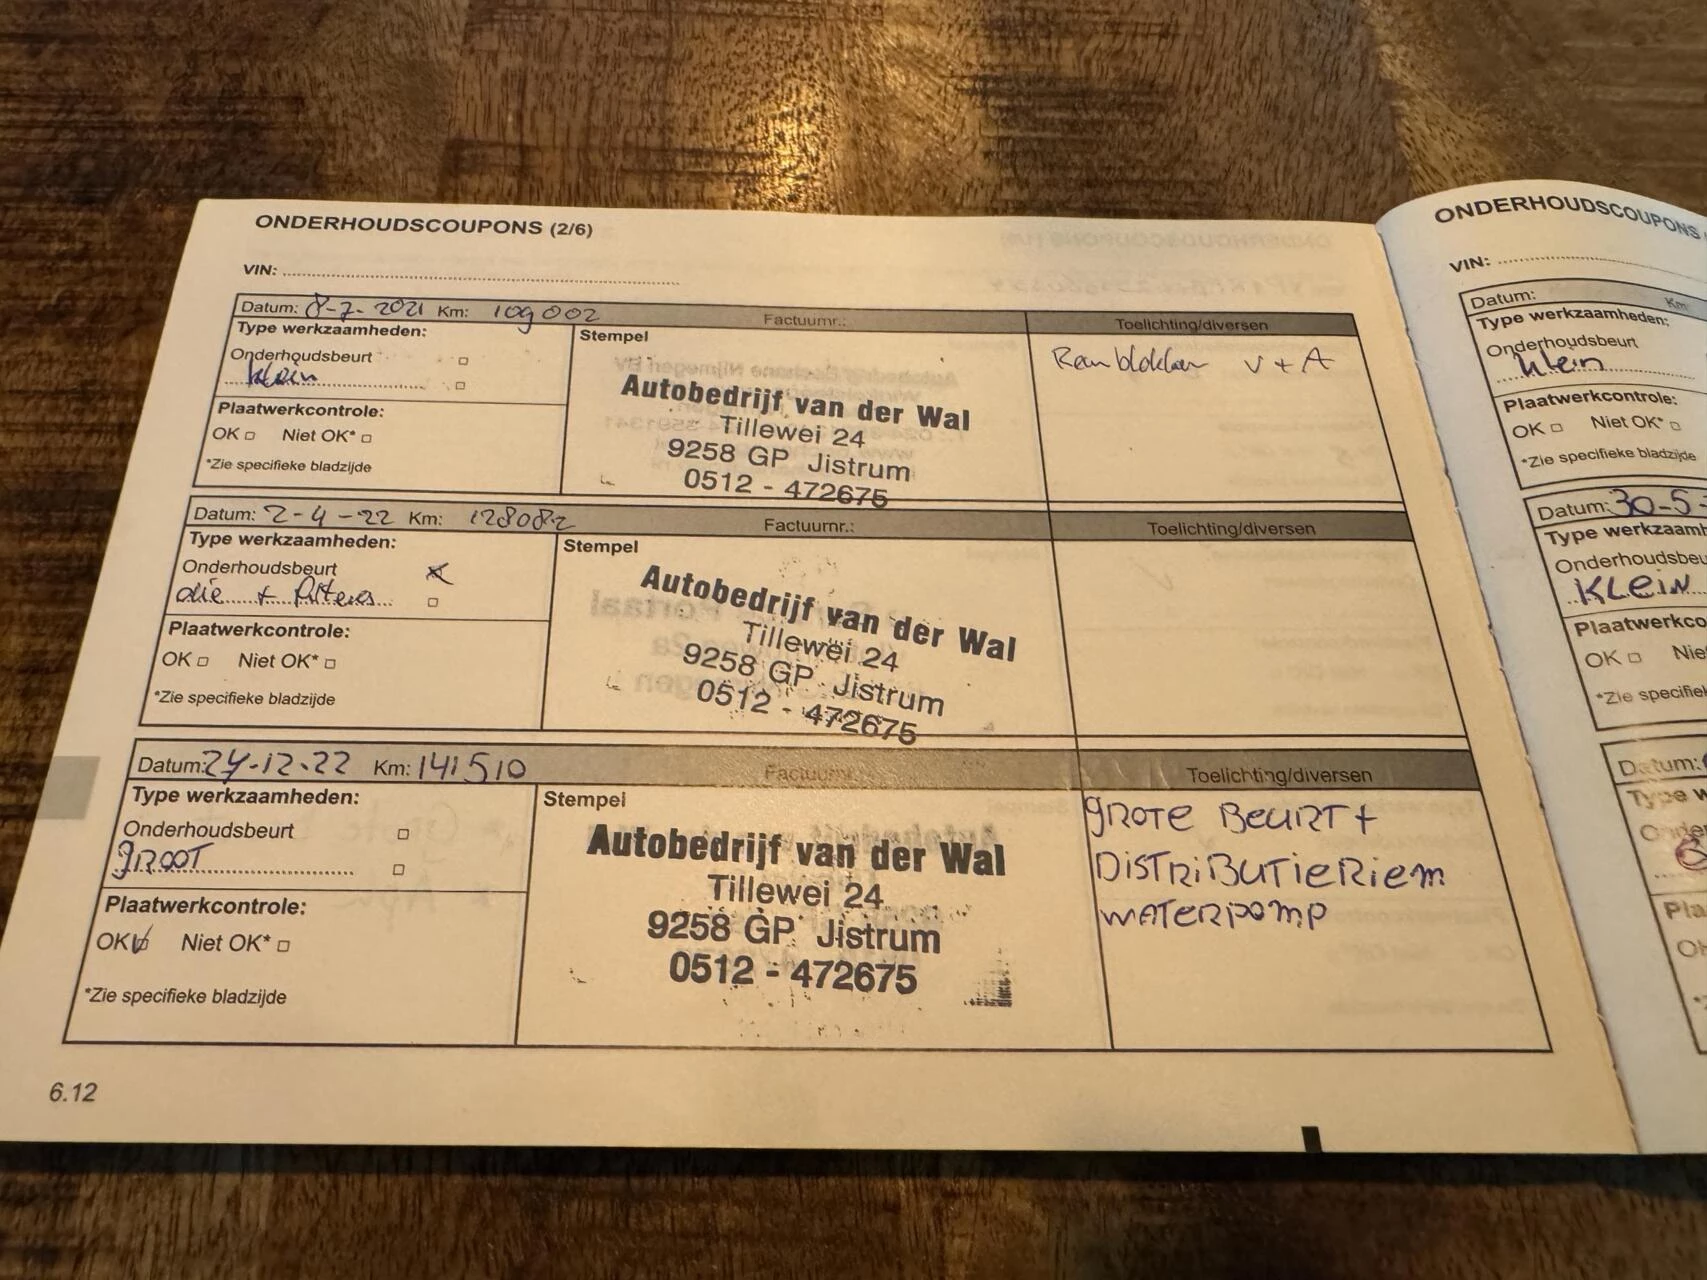 ONDERHOUDSCOUPONS (2/6)
VIN:
Datum: 8-7-2021 Km: 109002 Factuurnr.: Toelichting/diversen
Type werkzaamheden:
Onderhoudsbeurt
klein
Plaatwerkcontrole:
OK Niet OK*
*Zie specifieke bladzijde
Stempel
Autobedrijf van der Wal
Tillewei 24
9258 GP Jistrum
0512 - 472675
Remblokken V + A
Datum: 2-4-22 Km: 128082 Factuurnr.: Toelichting/diversen
Type werkzaamheden:
Onderhoudsbeurt
olie + filters
Plaatwerkcontrole:
OK Niet OK*
*Zie specifieke bladzijde
Stempel
Autobedrijf van der Wal
Tillewei 24
9258 GP Jistrum
0512 - 472675
Datum: 24-12-22 Km: 141510 Factuurnr.: Toelichting/diversen
Type werkzaamheden:
Onderhoudsbeurt
GROOT
Plaatwerkcontrole:
OK Niet OK*
*Zie specifieke bladzijde
Stempel
Autobedrijf van der Wal
Tillewei 24
9258 GP Jistrum
0512 - 472675
GROTE BEURT +
DISTRIBUTIERIEM
WATERPOMP
6.12
ONDERHOUDSCOUPONS
VIN:
Datum: Km:
Type werkzaamheden:
Onderhoudsbeurt
klein
Plaatwerkcontrole:
OK Niet OK*
*Zie specifieke bladzijde
Datum: 30-5-
Type werkzaamh
Onderhoudsbeu
KLEIN
Plaatwerkco
OK Nie
*Zie specifiek
Datum:
Type w
Onder
Pla